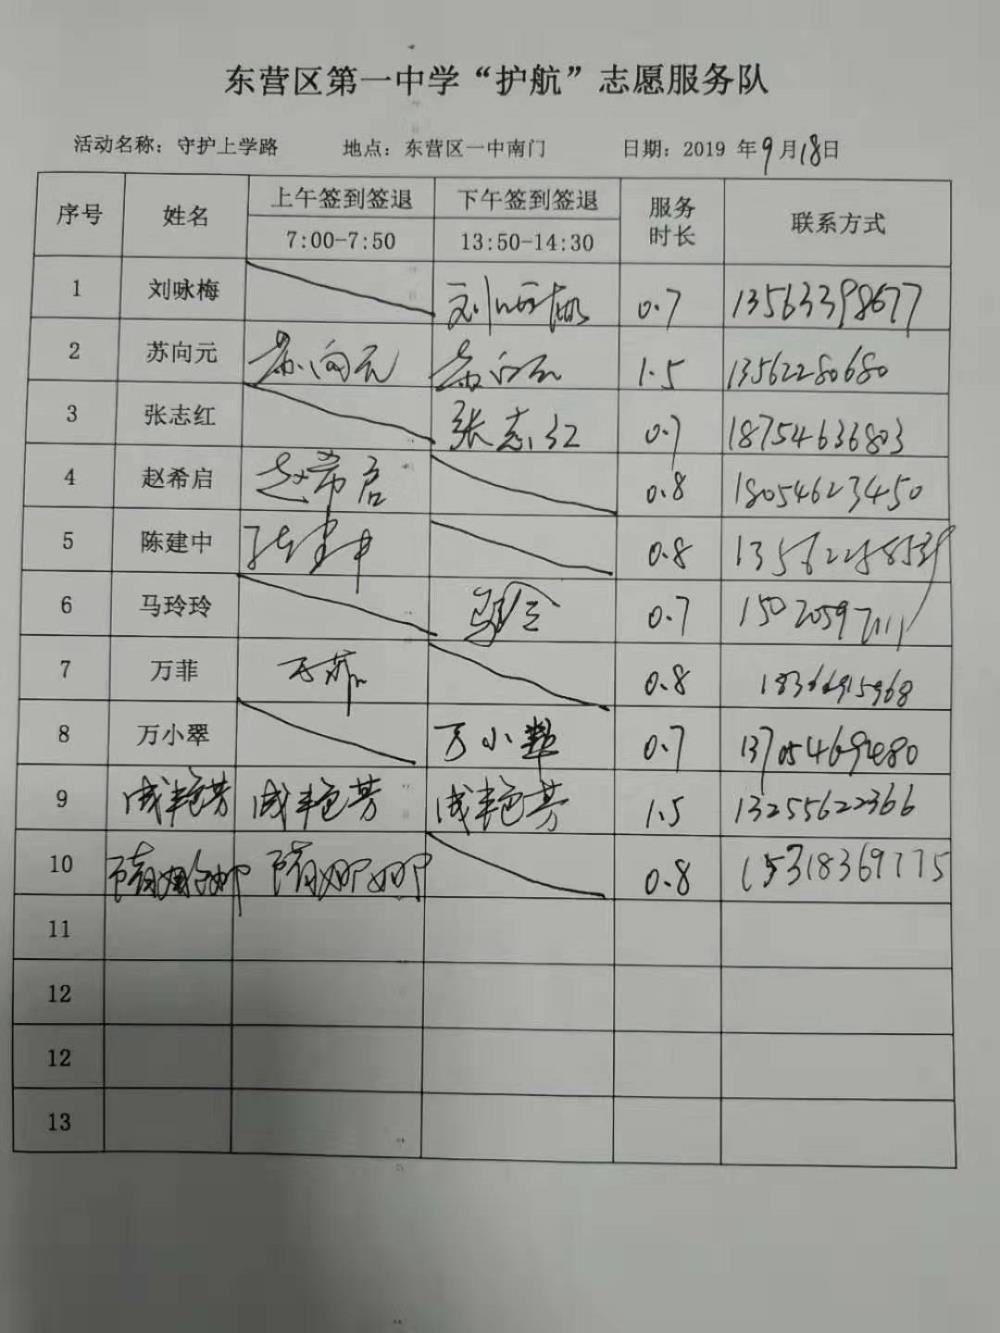 东营区第一中学“护航”志愿服务队
活动名称：守护上学路 地点：东营区一中南门 日期：2019 年9月18日
序号 姓名 上午签到签退 下午签到签退 服务时长 联系方式
7:00-7:50 13:50-14:30
1 刘咏梅 刘咏梅 0.7 13563398677
2 苏向元 苏向元 苏向元 1.5 13562280680
3 张志红 张志红 0.7 18754636803
4 赵希启 赵希启 0.8 18054623450
5 陈建中 陈建中 0.8
6 马玲玲 马玲 0.7
7 万菲 万菲 0.8 18366915968
8 万小翠 万小翠 0.7 13705469480
9 成艳芳 成艳芳 成艳芳 1.5 13255622366
10 隋娜娜 0.8 15318369775
11
12
12
13